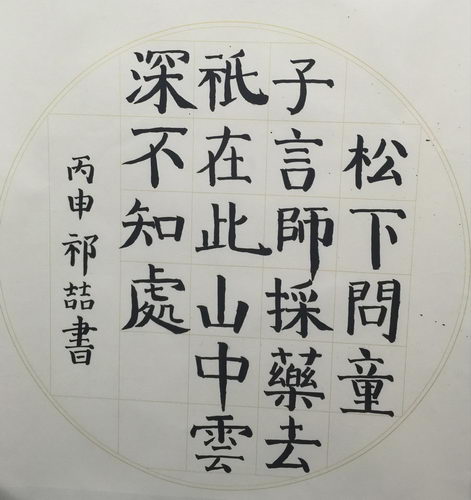 松下問童
子言師採藥去
祇在此山中雲
深不知處
丙申祁喆書